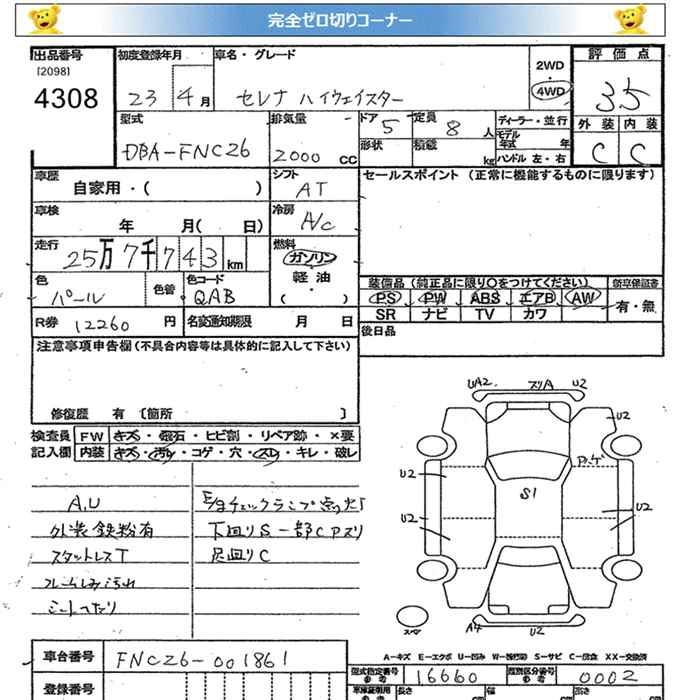 完全ゼロ切りコーナー
出品番号 [2098] 4308
初度登録年月 23 4月
車名・グレード セレナ ハイウェイスター
2WD・4WD
評価点 3.5
型式 DBA-FNC26
排気量 2000 CC
ドア 5
定員 8 人
形状
積載 kg
ディーラー・並行
モデル年式 年
ハンドル 左・右
外装 C
内装 C
車歴 自家用・( )
シフト AT
セールスポイント (正常に機能するものに限ります)
車検 年 月( 日)
冷房 A/C
走行 25万7千743km
燃料 ガソリン・軽油・( )
色 パール
色替
色コード QAB
装備品(純正品に限り○をつけてください)
PS PW ABS エアB AW
SR ナビ TV カワ
新車保証書 有・無
R券 12260 円
名変通知期限 月 日
後日品
注意事項申告欄(不具合内容等は具体的に記入して下さい)
修復歴 有 〔箇所 〕
検査員記入欄
FW キズ・飛石・ヒビ割・リペア跡・×要
内装 キズ・汚れ・コゲ・穴・スレ・キレ・破レ
A,U
外装鉄粉有
スタットレスT
シートへたり
E/gチェックランプ点灯
下回りS 一部Cアリ
足回りC
UA2 スリA U2
U2
U2
S1
U2
U2
A4 U2
A-キズ E-エクボ U-凹み W-補修跡 S-サビ C-腐食 XX-交換済
車台番号 FNC26-001861
登録番号
型式指定番号 参考 16660
類別区分番号 参考 0002
長さ
幅
高さ